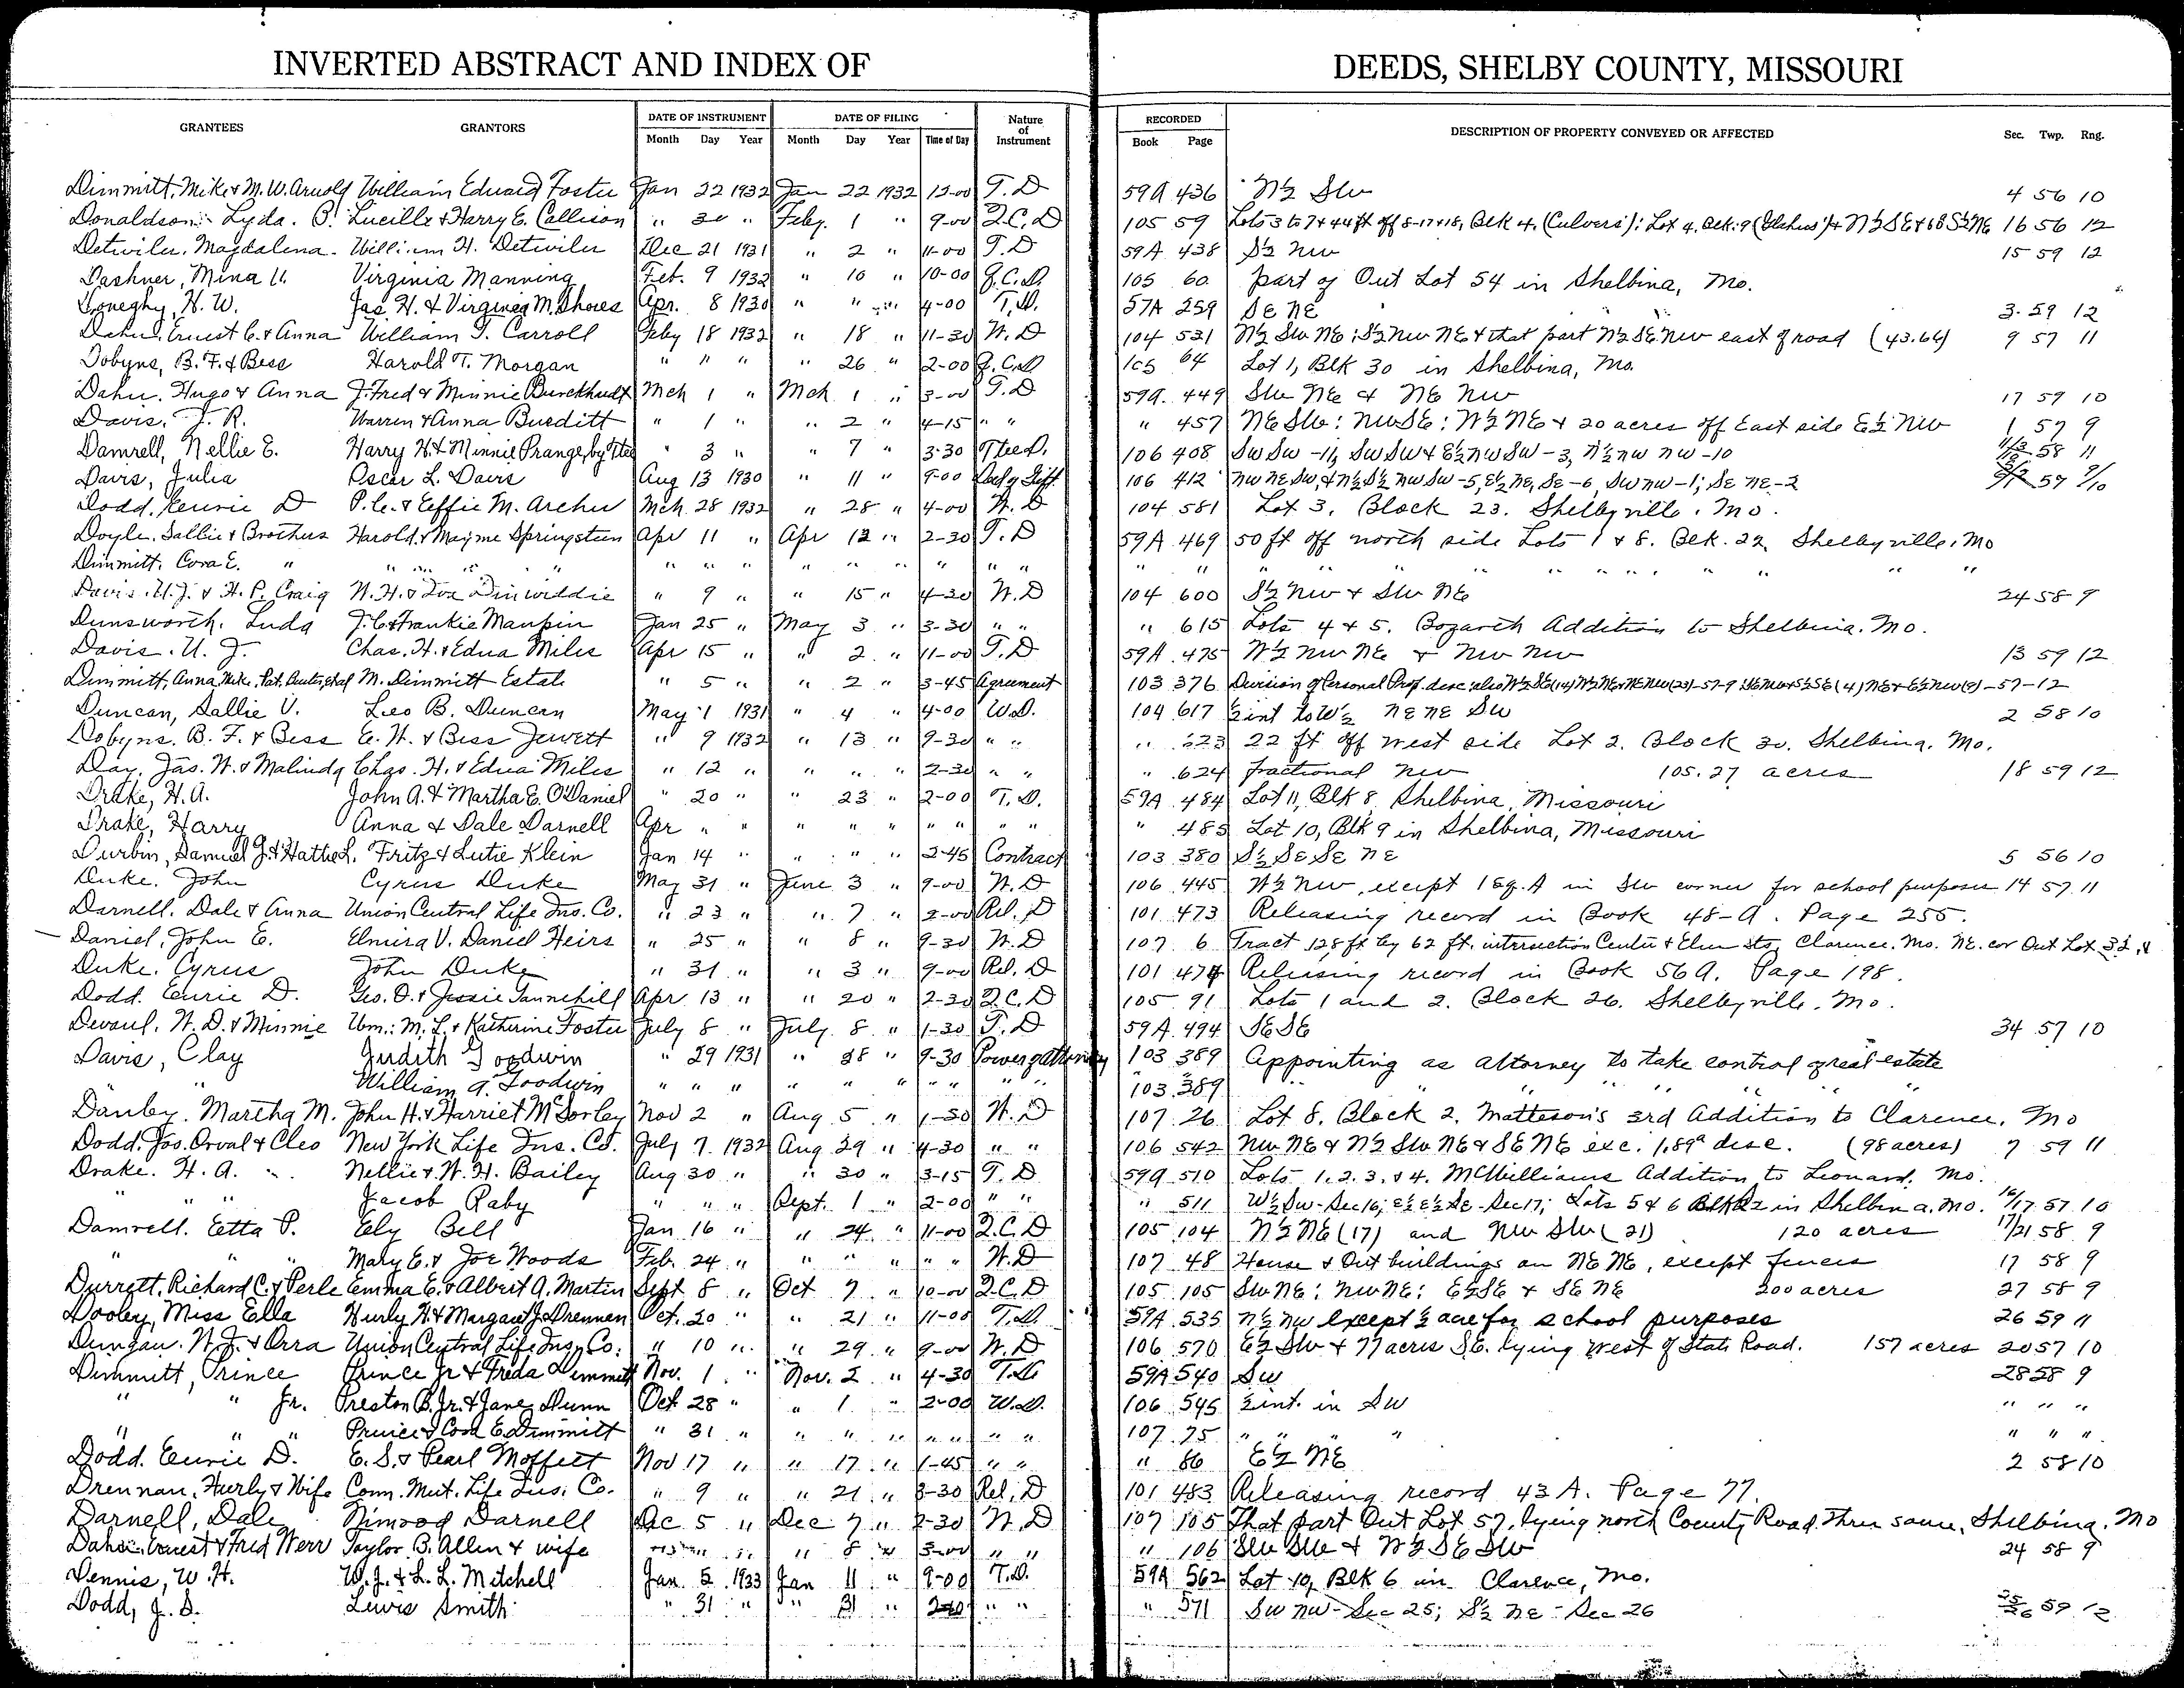 INVERTED ABSTRACT AND INDEX OF DEEDS, SHELBY COUNTY, MISSOURI
GRANTEES GRANTORS DATE OF INSTRUMENT Month Day Year DATE OF FILING Month Day Year Time of Day Nature of Instrument RECORDED Book Page DESCRIPTION OF PROPERTY CONVEYED OR AFFECTED Sec. Twp. Rng.
Dimmitt, Mike & M. W. Arnold William Edward Foster Jan 22 1932 Jan 22 1932 12-00 T.D 59A 436 N½ SW 4 56 10
Donaldson, Lyda. B. Lucille & Harry E. Callison " 30 " Feby. 1 " 9-00 Q.C.D 105 59 Lots 3 to 7 & 44 ft off 8-17 & 18, Blk 4, (Culvers); Lot 4, Blk. 9 & N½ SE & 68 S½ NE 16 56 12
Detwiler, Magdalena. William H. Detwiler Dec 21 1931 " 2 " 11-00 T.D 59A 438 S½ NW 15 59 12
Dashner, Mina U. Virginia Manning Feb. 9 1932 " 10 " 10-00 Q.C.D. 105 60 part of Out Lot 54 in Shelbina, Mo.
Doneghy, H. W. Jas. H. & Virginia M. Shores Apr. 8 1930 " " " 4-00 T.D. 57A 259 SE NE 3 59 12
Dahn, Ernest C. & Anna William T. Carroll Feby 18 1932 " 18 " 11-30 W.D 104 531 N½ SW NE; S½ NW NE & that part N½ SE NW east of road (43.64) 9 57 11
Dobyns, B. F. & Bess Harold T. Morgan " " " " 26 " 2-00 Q.C.D 105 64 Lot 1, Blk 30 in Shelbina, Mo.
Dahn, Hugo & Anna J. Fred & Minnie Burckhardt Mch 1 " Mch 1 " 3-00 T.D 59A 449 SW NE & NE NW 17 59 10
Davis, J. R. Warren & Anna Burditt " 1 " " 2 " 4-15 " " " 457 NE SW; NW SE; W½ NE & 20 acres off East side E½ NW 1 57 9
Damrell, Nellie E. Harry H. & Minnie Prange, by Ttee " 3 " " 7 " 3-30 Ttee D. 106 408 SW SW -11, SW SW & E½ NW SW -3, N½ NW NW -10 58 11
Davis, Julia Oscar L. Davis Aug 13 1930 " 11 " 9-00 Deed of Gift 106 412 NW NE SW, & N½ S½ NW SW -5, E½ NE, SE -6, SW NW -1; SE NE -2 57 9/10
Dodd, Eurie D P. C. & Effie M. Archer Mch 28 1932 " 28 " 4-00 W.D 104 581 Lot 3, Block 23, Shelbyville, Mo.
Doyle, Sallie & Brothers Harold & Mayme Springsteen Apr 11 " Apr 12 " 2-30 T.D 59A 469 50 ft off north side Lots 1 & 8, Blk. 22, Shelbyville, Mo
Dimmitt, Cora E. " " " " " " " " " " " " " " " " " " "
Davis, U. J. & H. P. Craig W. H. & Zoe Dinwiddie " 9 " " 15 " 4-30 W.D 104 600 S½ NW & SW NE 24 58 9
Dunsworth, Luda J. C. & Frankie Maupin Jan 25 " May 3 " 3-30 " " " 615 Lots 4 & 5, Bozarth Addition to Shelbina, Mo.
Davis, U. J. Chas. H. & Edna Miles Apr 15 " " 2 " 11-00 T.D 59A 475 W½ NW NE & NW NW 13 59 12
Dimmitt, Anna, Mike, Pat, et al M. Dimmitt Estate " 5 " " 2 " 3-45 Agreement 103 376 Division of Personal Prop. desc. also W½ SE (14) W½ NE & NE NW (23) -57-9; NE NW & S½ SE (4) NE & E½ NW (9) -57-12
Duncan, Sallie V. Leo B. Duncan May 1 1931 " 4 " 4-00 W.D. 104 617 ½ int to W½ NE NE SW 2 58 10
Dobyns, B. F. & Bess E. W. & Bess Jewett " 9 1932 " 13 " 9-30 " " " 623 22 ft off west side Lot 2, Block 30, Shelbina, Mo.
Day, Jas. W. & Malinda Chas. H. & Edna Miles " 12 " " " " 2-30 " " " 624 Fractional NW 105.27 acres 18 59 12
Drake, H. A. John A. & Martha E. O'Daniel " 20 " " 23 " 2-00 T.D. 59A 484 Lot 11, Blk 8, Shelbina, Missouri
Drake, Harry Anna & Dale Darnell Apr " " " " " " " " " " 485 Lot 10, Blk 9 in Shelbina, Missouri
Durbin, Samuel J. & Hattie L. Fritz & Lutie Klein Jan 14 " " " " 2-45 Contract 103 380 S½ SE SE NE 5 56 10
Duke, John Cyrus Duke May 31 " June 3 " 9-00 W.D 106 445 W½ NW, except 1 sq. A in SW corner for school purposes 14 57 11
Darnell, Dale & Anna Union Central Life Ins. Co. " 23 " " 7 " 2-00 Rel. D 101 473 Releasing record in Book 48-A, Page 255.
Daniel, John E. Elmira V. Daniel Heirs " 25 " " 8 " 9-30 W.D 107 6 Tract 128 ft by 62 ft, intersection Center & Elm Sts, Clarence, Mo. NE. cor Out Lot 32, &
Duke, Cyrus John Duke " 31 " " 3 " 9-00 Rel. D 101 474 Releasing record in Book 56A, Page 198.
Dodd, Eurie D. Geo. O. & Jessie Tannehill Apr 13 " " 20 " 2-30 Q.C.D 105 91 Lots 1 and 2, Block 26, Shelbyville, Mo.
Devaul, W. D. & Minnie Wm.; M. L. & Katherine Foster July 8 " July 8 " 1-30 T.D 59A 494 SE SE 34 57 10
Davis, Clay Judith Goodwin " 29 1931 " 28 " 9-30 Power of attorney 103 389 Appointing as attorney to take control of real estate
" William A. Goodwin " " " " " " " " " " 103 389 " " " " " "
Danley, Martha M. John H. & Harriet McSorley Nov 2 " Aug 5 " 1-30 W.D 107 26 Lot 8, Block 2, Matteson's 3rd Addition to Clarence, Mo
Dodd, Jos. Orval & Cleo New York Life Ins. Co. July 7 1932 Aug 29 " 4-30 " " 106 542 NW NE & N½ SW NE & SE NE exc. 1.89a desc. (98 acres) 7 59 11
Drake, H. A. Nellie & W. H. Bailey Aug 30 " " 30 " 3-15 T.D 59A 510 Lots 1, 2, 3, & 4, McWilliams Addition to Leonard, Mo.
" " " Jacob Raby " " " Sept. 1 " 2-00 " " " 511 W½ SW - Sec 16; E½ E½ SE - Sec 17; Lots 5 & 6 in Shelbina, Mo. 16/17 57 10
Damrell, Etta P. Ely Bell Jan 16 " " 24 " 11-00 Q.C.D 105 104 N½ NE (17) and NW SW (21) 120 acres 17/21 58 9
" " " Mary E. & Joe Woods Feb. 24 " " " " " " W.D 107 48 House & Out buildings on NE NE, except fences 17 58 9
Durrett, Richard C. & Perle Emma E. & Albert A. Martin Sept 8 " Oct 7 " 10-00 Q.C.D 105 105 SW NE; NW NE; E½ SE & SE NE 200 acres 27 58 9
Dooley, Miss Ella Hurly H. & Margaret J. Drennen Oct. 20 " " 21 " 11-00 T.D. 59A 535 N½ NW except ½ acre for school purposes 26 59 11
Dungan, W. J. & Orra Union Central Life Ins. Co. " 10 " " 29 " 9-00 W.D 106 570 E½ SW & 77 acres SE. lying west of State Road. 157 acres 20 57 10
Dimmitt, Prince Prince Jr & Freda Dimmitt Nov. 1 " Nov. 2 " 4-30 T.D. 59A 540 SW 28 58 9
" " Jr. Preston B. Jr. & Jane Dunn Oct 28 " " 1 " 2-00 W.D. 106 545 ½ int. in SW " " "
" " " Prince & Cora E. Dimmitt " 31 " " " " " " " " 107 75 " " " " " "
Dodd, Eurie D. E. S. & Pearl Moffett Nov 17 " " 17 " 1-45 " " " 86 E½ NE 2 58 10
Drennan, Hurly & Wife Conn. Mut. Life Ins. Co. " 9 " " 21 " 3-30 Rel. D 101 483 Releasing record 43 A. Page 77.
Darnell, Dale Nimrod Darnell Dec 5 " Dec 7 " 2-30 W.D 107 105 That part Out Lot 57, lying north County Road Thru same, Shelbina, Mo
Dahn, Ernest & Fred Werr Taylor B. Allen & wife " 8 " 3-00 " " " 106 SW SW & W½ SE SW 24 58 9
Dennis, W. H. W. J. & L. L. Mitchell Jan. 5 1933 Jan 11 " 9-00 T.D. 59A 562 Lot 10, Blk 6 in Clarence, Mo.
Dodd, J. S. Lewis Smith " 31 " " 31 " " " " 571 SW NW - Sec 25; S½ NE - Sec 26 25/26 59 12